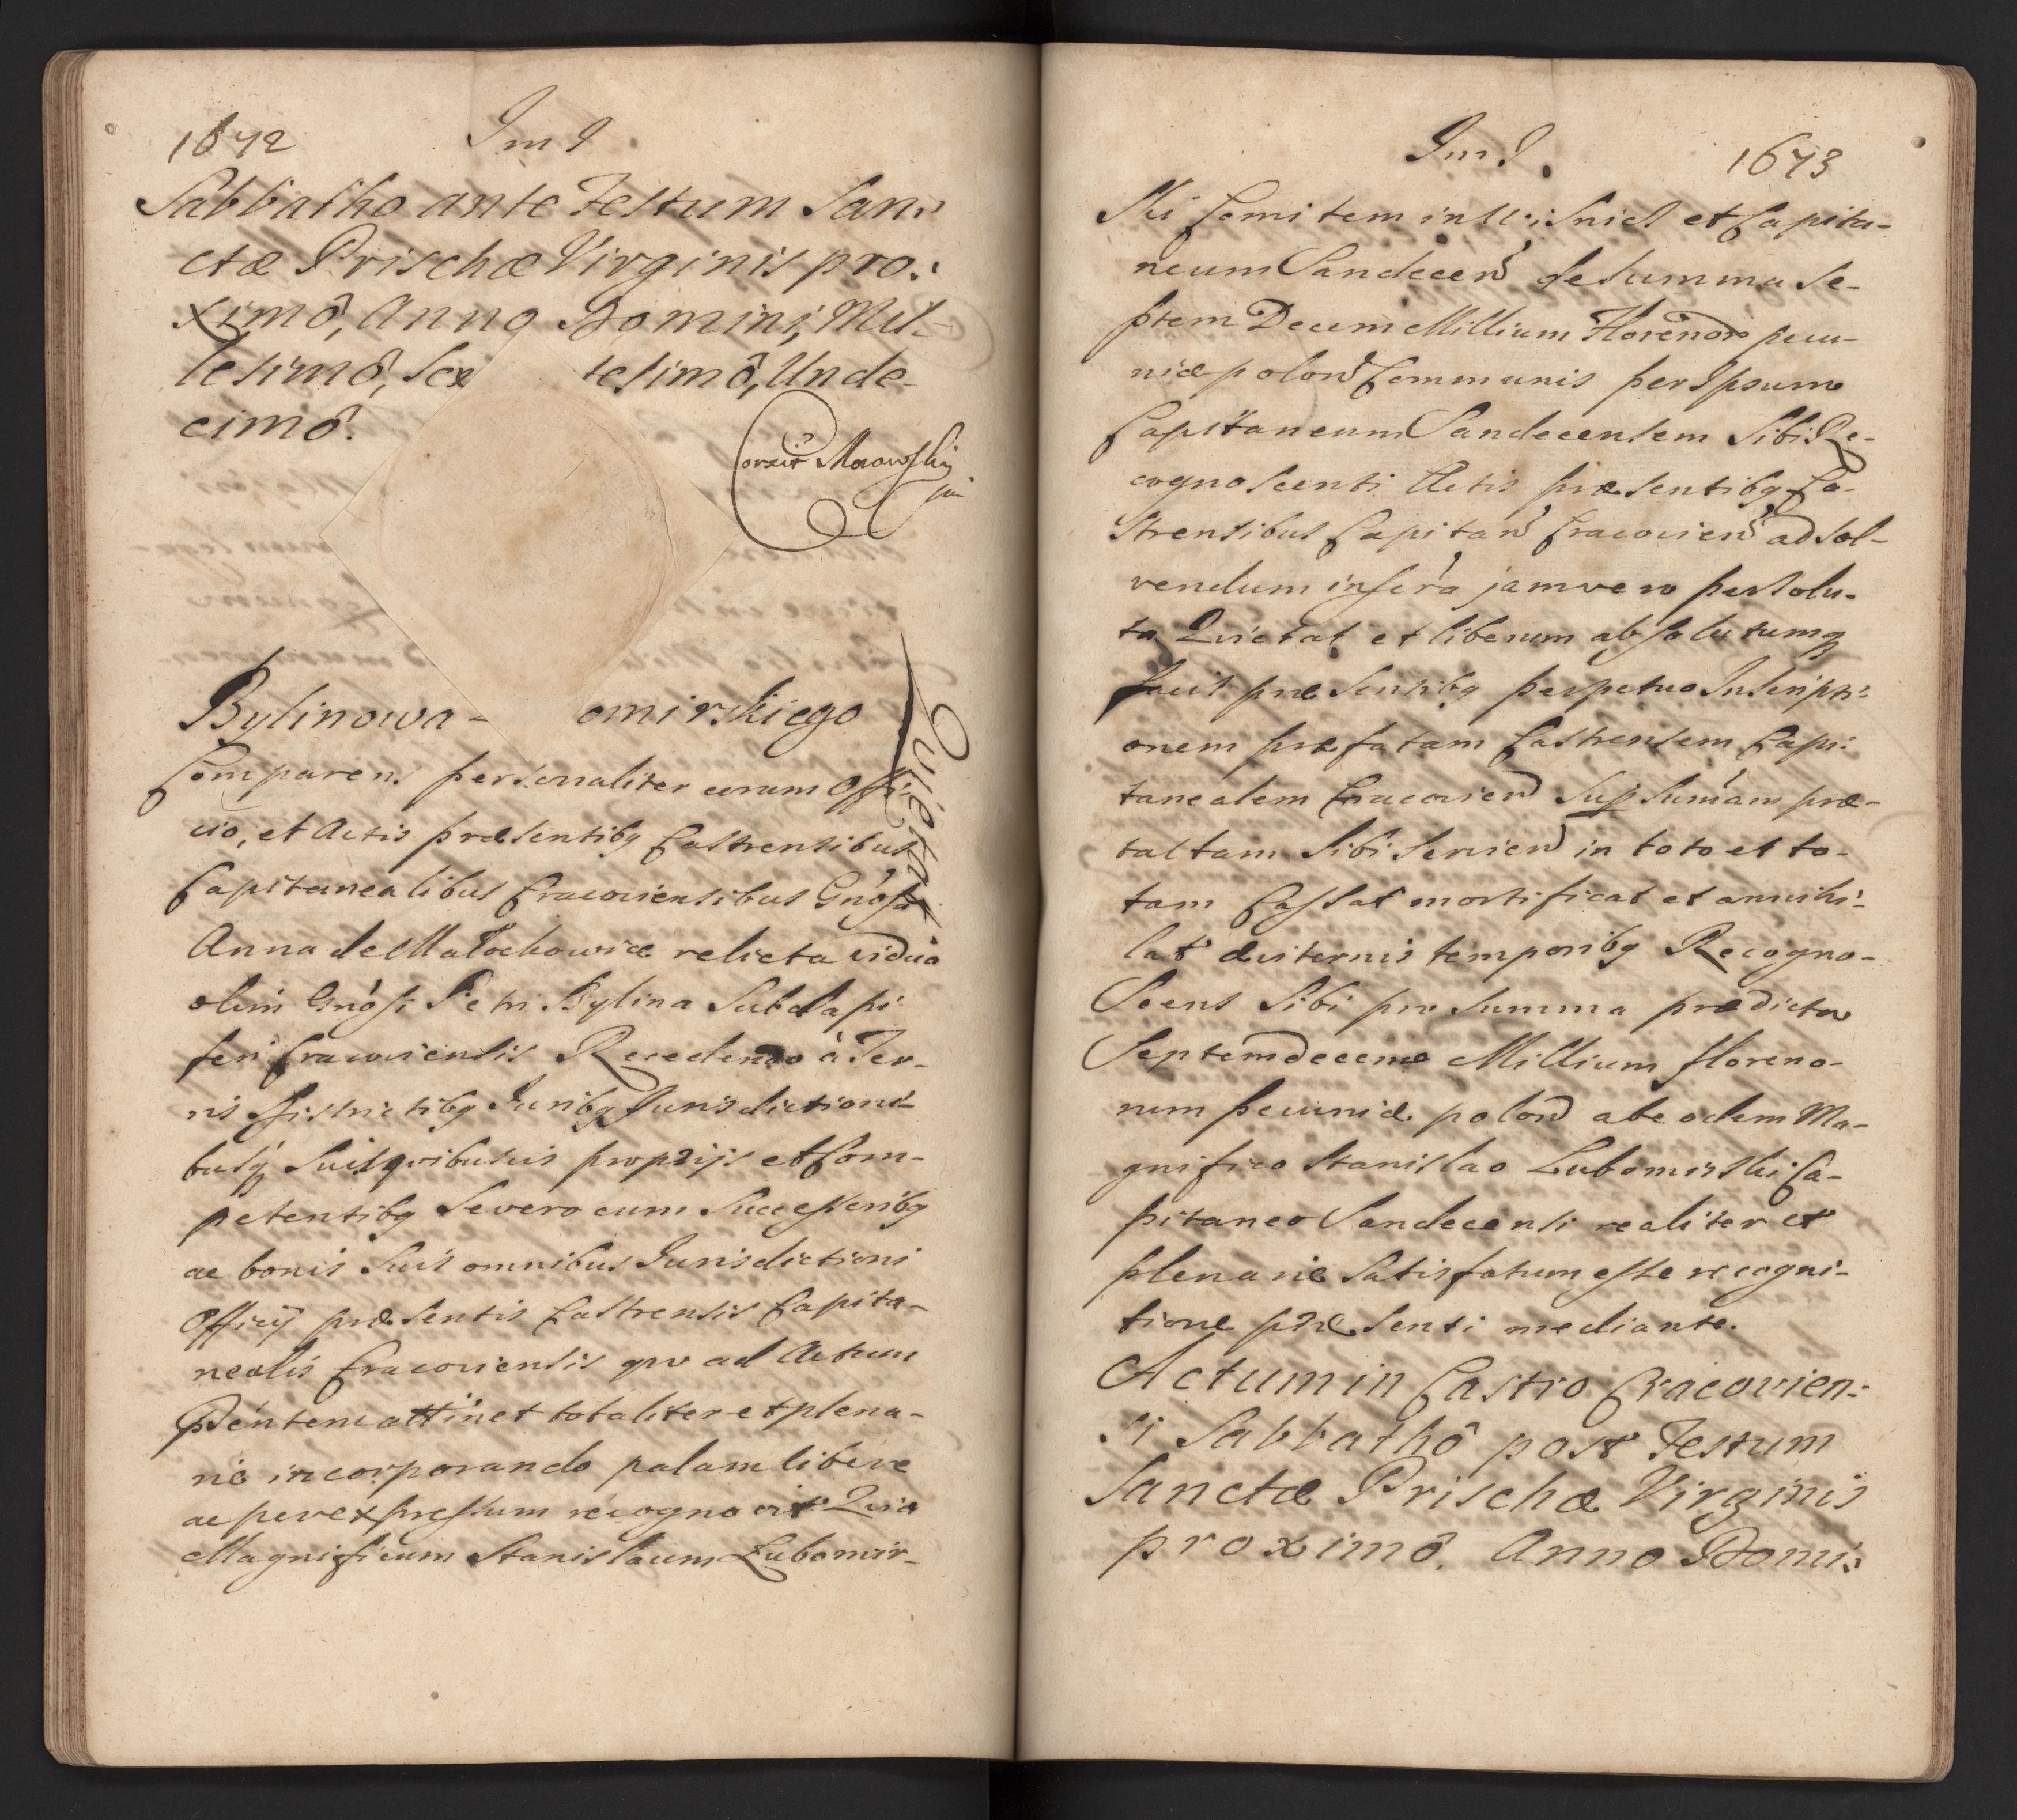 1672
Im J.
Sabbatho ante Festum San:
ctæ Prischæ Virginis pro:
ximô, Anno Domini, Mil-
lesimô, Sex tesimô, Unde-
cimô.
Corxit Morawski
Bylinowa - omirskiego
Quietat
Comparens personaliter corum Offi-
cio, et Actis præsentibq Castrensibus
Capitanealibus Cracoviensibus Gn̄osa
Anna de Małochowice relicta vidua
olim Gn̄osi Petri Bylina Subdapi-
feri Cracoviensis Recedendo à Ter-
ris Districtibq Juribq Jurisdictioni-
busq Suis quibusuis proprijs et Com-
petentibq Se vero cum Successoribq
ac bonis Suis omnibus Jurisdictioni
Officij præsentis Castrensis Capita-
nealis Cracoviensis quo ad Actum
Pn̄tem attinet totaliter et plena-
rie incorporando palam libere
ac per expressum recognovit Quia
Magnificum Stanislaum Lubomir-
Im J.
1673
Ski Comitem in Wisnicz et Capita-
neum Sandecen̄ de Summa Se-
ptem Decem Millium Florenor pecu-
niæ polon̄ Communis per Ipsum
Capitaneum Sandecensem Sibi Re-
cognoscenti Actis præsentibq Ca-
strensibus Capitan̄ Cracovien̄ ad Sol-
vendum inscr̄a jam vero persolu-
ta Quietat et liberum absolutumq
facit præsentibq perpetuo Inscripti-
onem præfatam Castrensem Capi-
tanealem Cracovien̄ Sup Sum̄am præ-
taltam Sibi Servien̄ in toto et to-
tam Cassat mortificat et annihi-
lat æviternis temporibq Recogno-
Scens Sibi pro Summa prædicta
Septemdecem Millium floreno-
rum pecuniæ polon̄ ab eodem Ma-
gnifico Stanislao Lubomirski Ca-
pitaneo Sandecensi realiter et
plenarie Satisfatum esse recogni-
tione præsenti mediante.
Actum in Castro Cracovien-
si Sabbathô post Festum
Sanctæ Prischæ Virginis
proximô. Anno Domi: